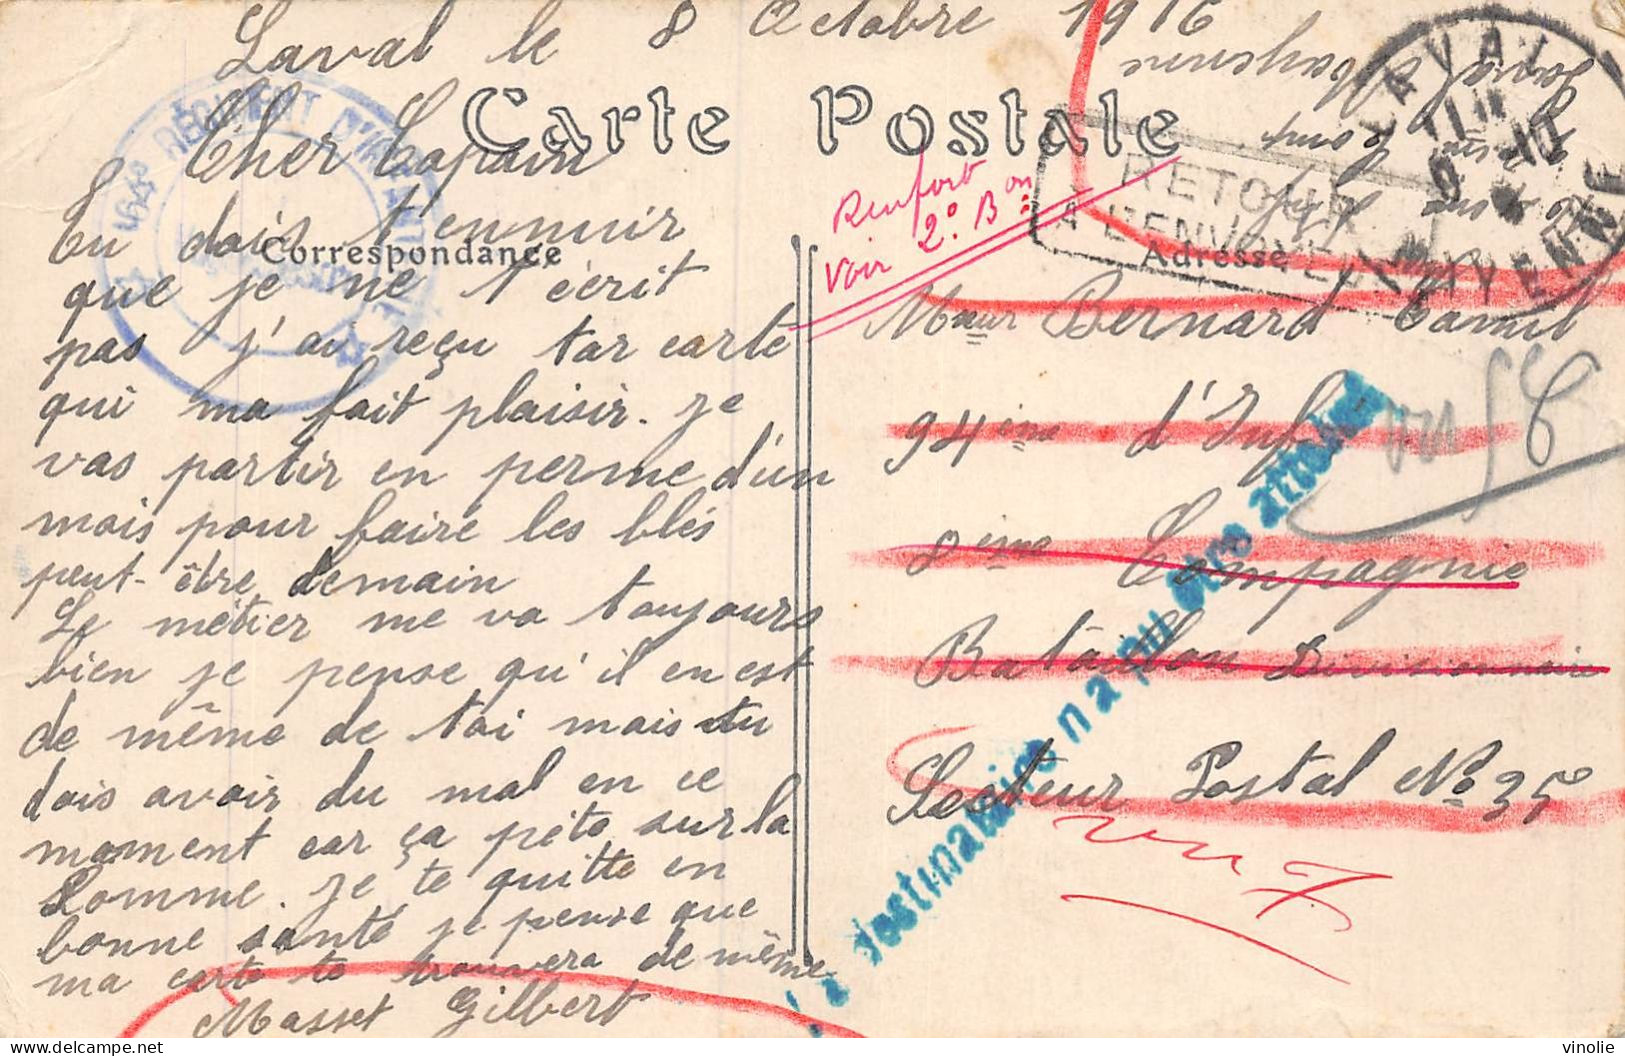 Laval le 8 Octobre 1916
Carte Postale
Correspondance
Cher Copain
Tu dois t'ennuir
que je ne t'écrit
pas j'ai reçu tar carte
qui ma fait plaisir. je
vas partir en perme d'un
mois pour faire les blés
peut-être demain
Le métier me va toujours
bien je pense qu'il en est
de même de toi mais tu
dois avoir du mal en ce
moment car ça pète sur la
Somme. je te quitte en
bonne santé je pense que
ma carte te trouvera de même
Masset Gilbert
164e RÉGIMENT D'INFANTERIE
Renfort
Voir 2e Bon
RETOUR
A L'ENVOYEUR
Adresse
LAVAL
MAYENNE
Laval Mayenne
Mseur Bernard Camil
94ème d'Infie
8ème Compagnie
Bataillon Divisionnaire
Secteur Postal No 35
Le destinataire n'a pu être atteint
vu 7
vinolie